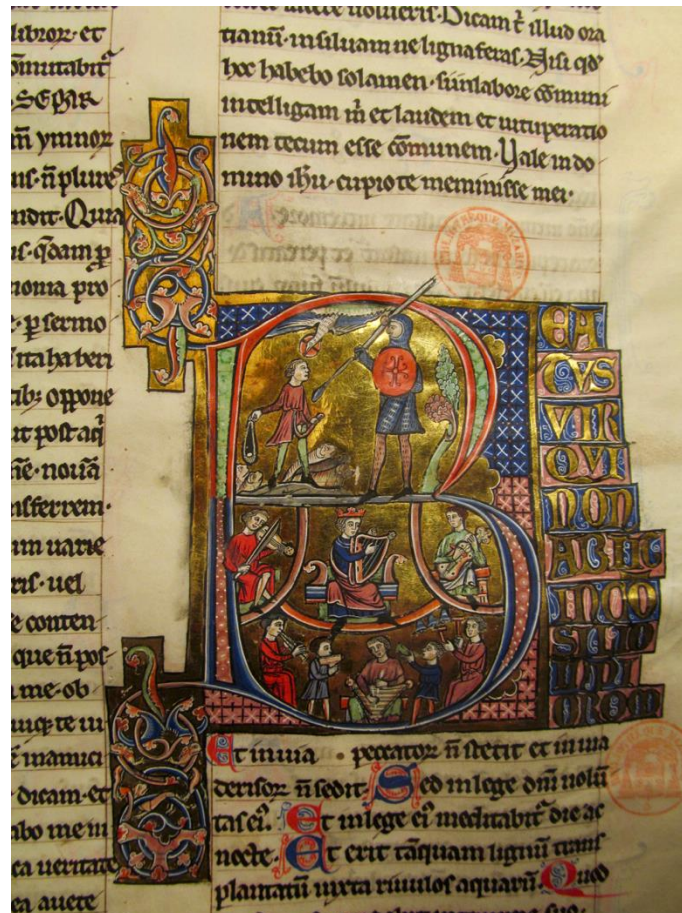 libroꝝ et
SEPAR
m̄ ymnoꝝ
us· n̄ plures
ndit· Quia
us· qdam p
monia pro
e· p sermo
ita haberi
tib; oppone
ut post aq̄
ne· nouā
nsferrem·
um uarie
ris· uel
e conten
que n̄ pos
a me· ob
e manuci
dicam· et
abo me in
ea ueritate
ea auete
auete uolueris· Dicam t̄ illud ora
tianū· in siluam ne ligna feras· Nisi qd
hoc habebo solamen· si in labore cōmuni
intelligam m̄ et laudem et uituperatio
nem tecum esse cōmunem· Vale in do
mino ihu· cupio te meminisse mei·
B
EA
TVS
VIR
QVI
NON
SILIO
Et in uia · peccatoꝝ n̄ stetit et in
derisoꝝ n̄ sedit· Sed in lege dn̄i uolū
tas ei'· Et in lege ei' meditabit̄ die ac
nocte· Et erit tāquam lignū trans
plantatū iuxta riuulos aquarū· Quod